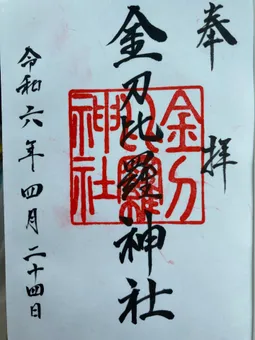 奉拝
金刀比羅神社
令和六年四月二十四日
金刀
比羅
神社